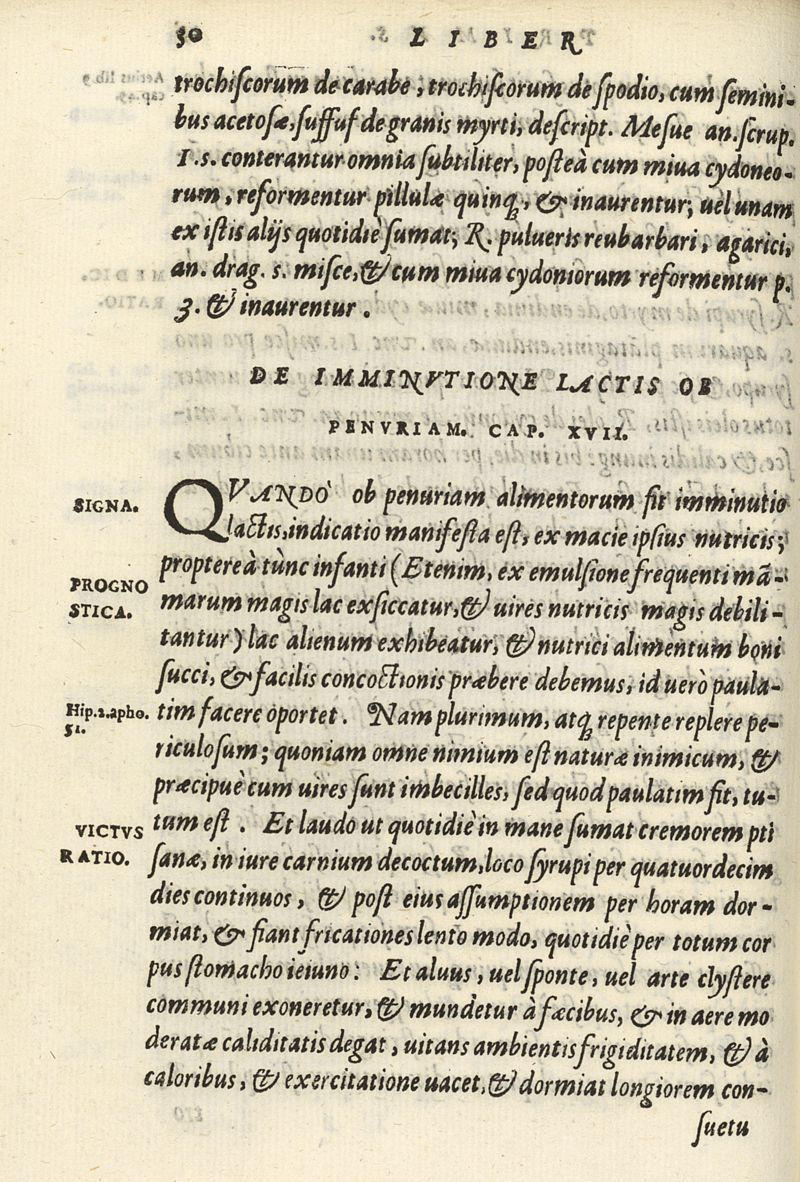 50 LIBER
trochiscorum de carabe, trochiscorum de spodio, cum semini-
bus acetosæ, suffuf de granis myrti, descript. Mesue an. scrup.
1. s. conterantur omnia subtiliter, posteà cum miua cydoneo-
rum, reformentur pillulæ quinq;, & inaurentur; uel unam
ex istis alijs quotidiè sumat; R. pulueris reubarbari, agarici,
an. drag. s. misce, & cum miua cydoniorum reformentur p.
3. & inaurentur.
DE IMMINVTIONE LACTIS OB
PENVRIAM. CAP. XVII.
SIGNA.
QVANDÒ ob penuriam alimentorum fit imminutio
lactis, indicatio manifesta est, ex macie ipsius nutricis;
proptereà tùnc infanti (Etenim, ex emulsione frequenti mā-
PROGNO
STICA.
marum magis lac exsiccatur, & uires nutricis magis debili-
tantur) lac alienum exhibeatur, & nutrici alimentum boni
succi, & facilis concoctionis præbere debemus, id uerò paula-
Hip. 2. apho.
51.
tim facere oportet. Nam plurimum, atq; repente replere pe-
riculosum; quoniam omne nimium est naturæ inimicum, &
præcipuè cum uires sunt imbecilles, sed quod paulatim fit, tu-
VICTVS
RATIO.
tum est. Et laudo ut quotidiè in mane sumat cremorem pti
sanæ, in iure carnium decoctum, loco syrupi per quatuordecim
dies continuos, & post eius assumptionem per horam dor-
miat, & fiant fricationes lento modo, quotidiè per totum cor
pus stomacho ieiuno: Et aluus, uel sponte, uel arte clystere
communi exoneretur, & mundetur à fæcibus, & in aere mo
deratæ caliditatis degat, uitans ambientis frigiditatem, & à
caloribus, & exercitatione uacet, & dormiat longiorem con-
suetu